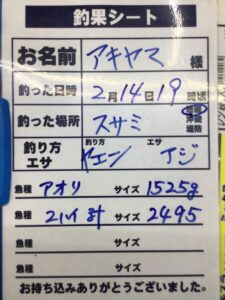 釣果シート
お名前 アキヤマ 様
釣った日時 2月14日19
釣った場所 スサミ 磯 堤防
釣り方 エサ 釣り方 ヤエン エサ アジ
魚種 アオリ サイズ 1525g
魚種 2ハイ計 サイズ 2495
魚種 サイズ
魚種 サイズ
お持ち込みありがとうございました。